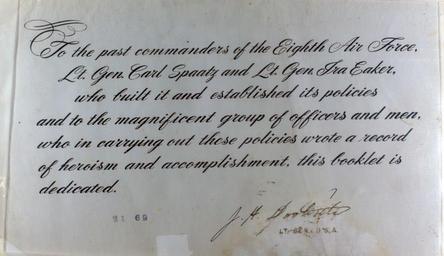 To the past commanders of the Eighth Air Force,
Lt. Gen. Carl Spaatz and Lt. Gen. Ira Eaker,
who built it and established its policies
and to the magnificent group of officers and men,
who in carrying out these policies wrote a record
of heroism and accomplishment, this booklet is
dedicated.
J. H. Doolittle